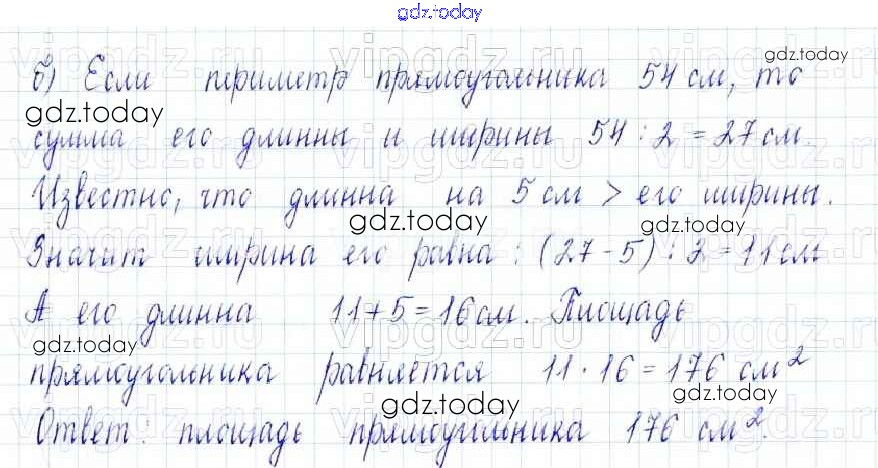 gdz.today
б) Если периметр прямоугольника 54 см, то
сумма его длинны и ширины 54 : 2 = 27 см.
Известно, что длинна на 5 см > его ширины.
Значит ширина его равна : (27 - 5) : 2 = 11 см
А его длинна 11 + 5 = 16 см. Площадь
прямоугольника равняется 11 · 16 = 176 см²
Ответ: площадь прямоугольника 176 см².
gdz.today
gdz.today
gdz.today
gdz.today
gdz.today
gdz.today
gdz.today
vipgdz.ru